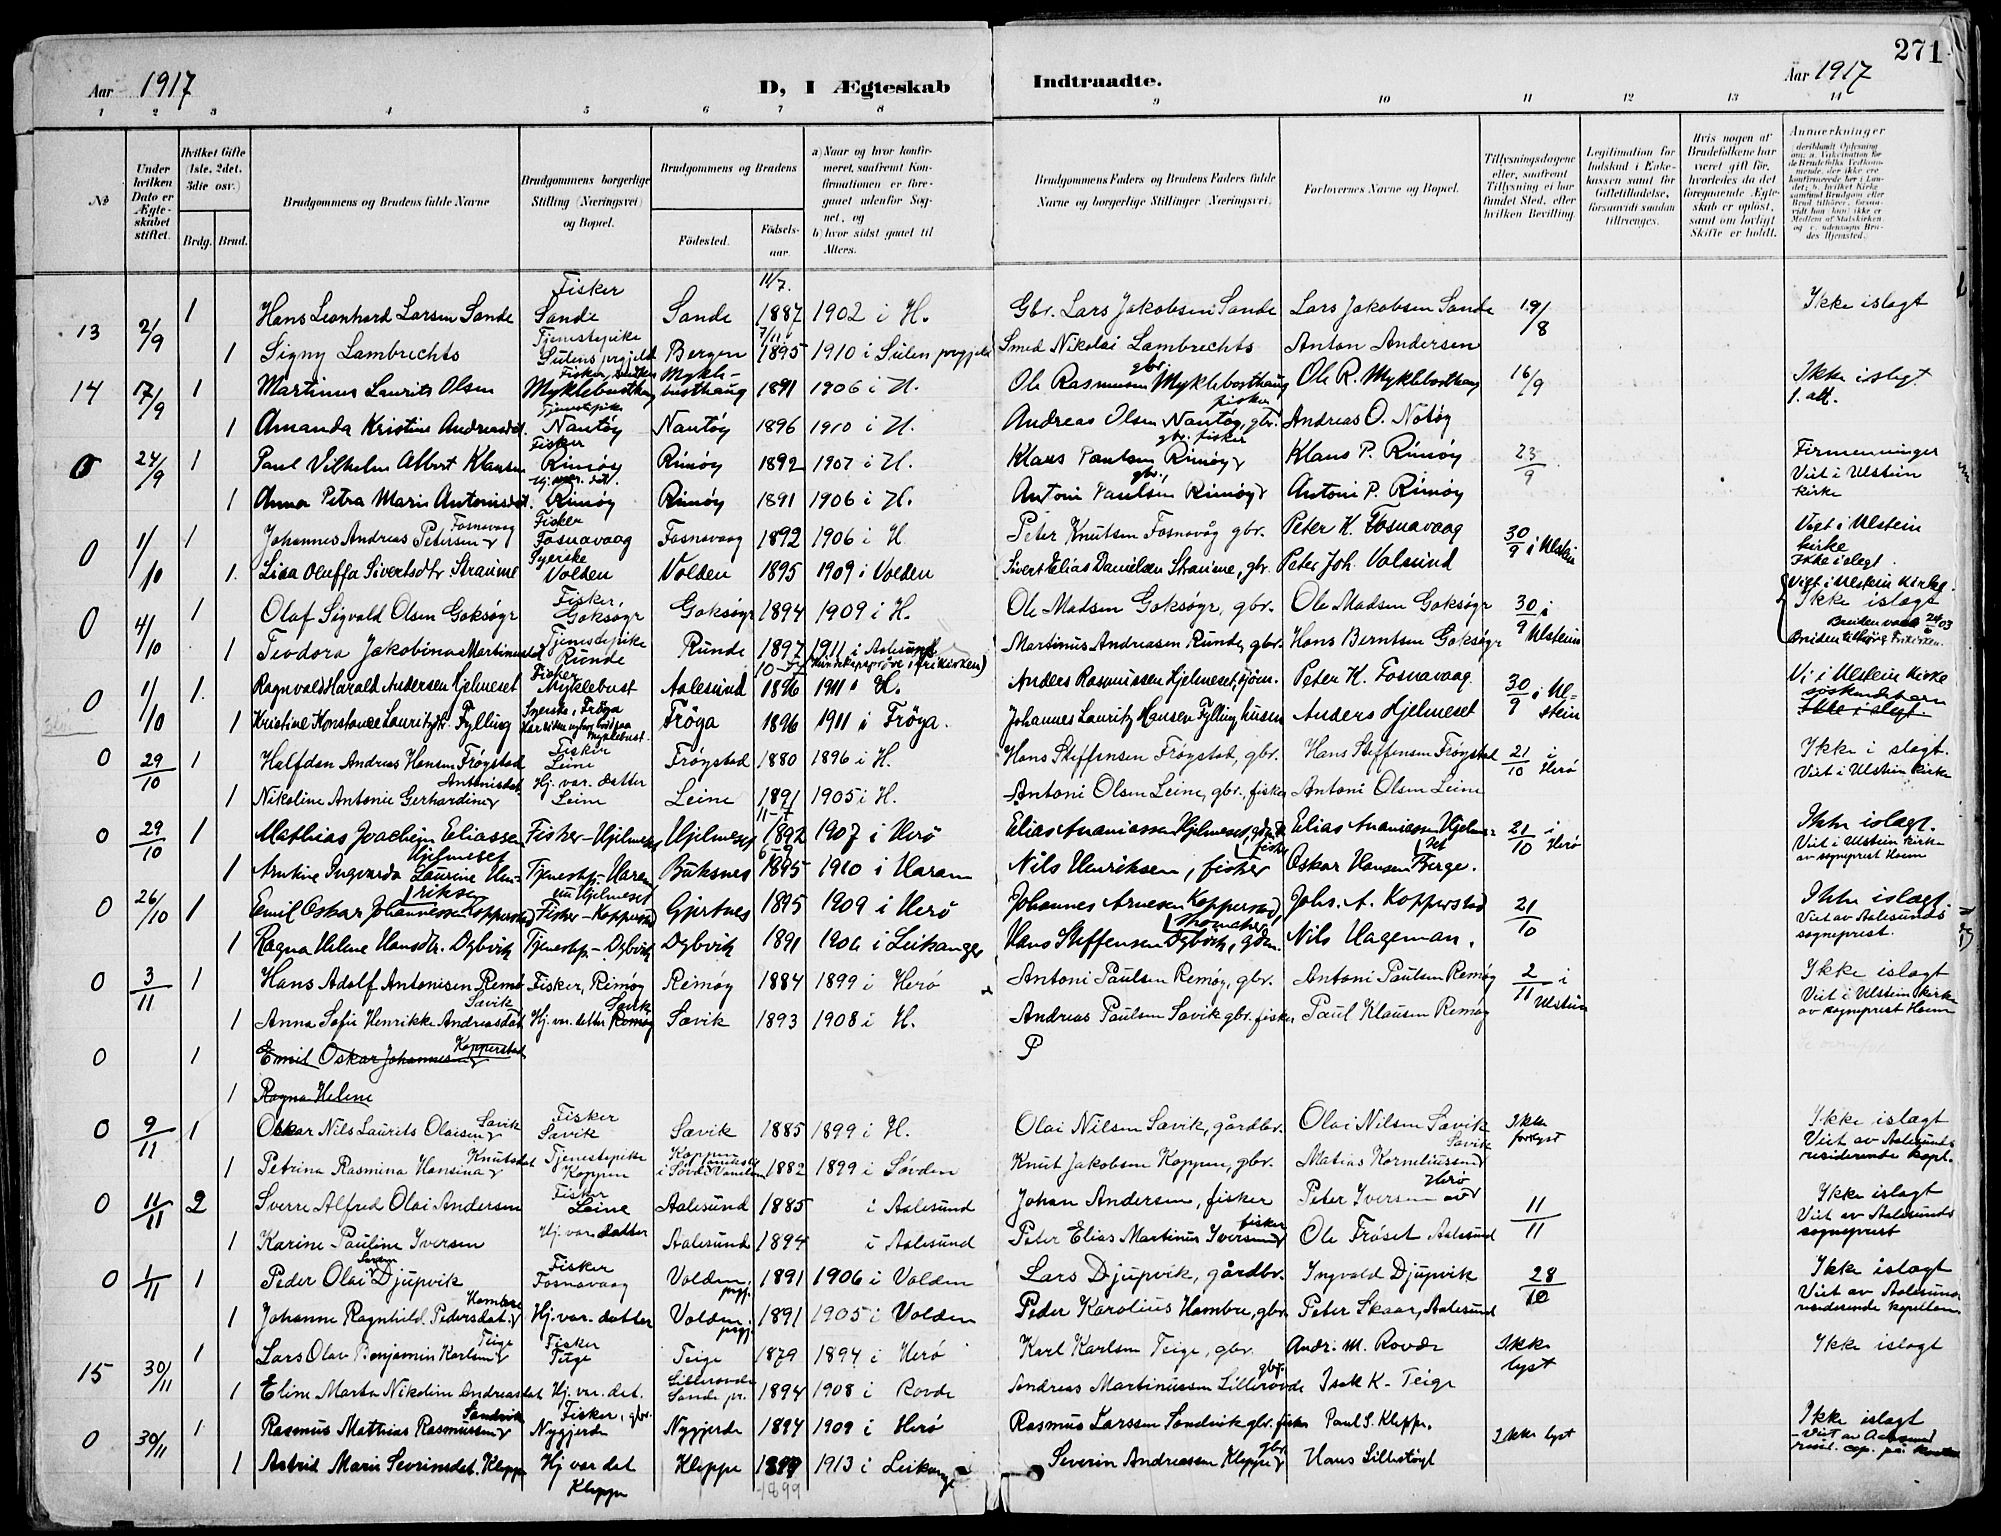 271
Aar 1917
D, I Ægteskab Indtraadte.
Aar 1917
1 2 3 4 5 6 7 8 9 10 11 12 13 14
No
Under hvilken Dato er Ægteskabet stiftet.
Hvilket Gifte (1ste, 2det, 3die osv.)
Brdg. Brud.
Brudgommens og Brudens fulde Navne
Brudgommens borgerlige Stilling (Næringsvei) og Bopæl.
Brudgommens og Brudens
Fødested. Fødselsaar
a) Naar og hvor konfirmeret, saafremt Konfirmationen er foregaaet udenfor Sognet, og b) hvor sidst gaaet til Alters.
Brudgommens Faders og Brudens Faders fulde Navne og borgerlige Stillinger (Næringsvei).
Forlovernes Navne og Bopæl.
Tillysningsdagene eller, saafremt Tillysning ei har fundet Sted, efter hvilken Bevilling.
Legitimation for Indskud i Enkekassen samt for Giftetilladelse, forsaavidt saadan tiltrænges.
Hvis nogen af Brudefolkene har været gift før, hvorledes da det foregaaende Ægteskab er opløst, samt om lovligt Skifte er holdt.
Anmærkninger
13 2/9 1 Hans Leonhard Larsen Sande Fisker Sande Sande 11/7. 1887 1902 i H. Gbr. Lars Jakobsen Sande Lars Jakobsen Sande 19/8 Ikke islagt
1 Signy Lambrechts Tjenestepike Sulens prgjeld Bergen 7/11 1895 1910 i Sulen prgjeld Smed Nikolai Lambrechts Anton Andersen
14 17/9 1 Martinus Laurits Olsen Fisker, Myklebusthaug Myklebusthaug 1891 1906 i H. Ole Rasmussen Myklebosthaug gbr. Ole R. Myklebosthaug 16/9 Ikke islegt
1 Amanda Kristine Andreasdat. Tjenestepike Nautøy Nautøy 1896 1910 i H. Andreas Olsen Nautøy, gbr. fisker Andreas O. Notøy
0 24/9 1 Paul Vilhelm Albert Klausen Fisker Rimøy Rimøy 1892 1907 i H. Klaus Paulsen Rimøy gbr. fisker Klaus P. Rimøy 23/9 Firmenninger Viet i Ulstein kirke
1 Anna Petra Marie Antonisdat. Hj. vær. dat. Rimøy Rimøy 1891 1906 i H. Antoni Paulsen Rimøy gbr. Antoni P. Rimøy
0 1/10 1 Johannes Andreas Petersen Fosnavaag Fisker Fosnavaag Fosnavaag 1892 1906 i H. Peter Knutsen Fosnavåg gbr. Peter K. Fosnavaag 30/9 i Ulstein Viet i Ulstein kirke Ikke i slegt.
1. Lisa Oluffa Sivertsdtr Straume Syerske Volden Volden 1895 1909 i Volden Sivert Elias Danielsen Straume, gbr. Peter Joh. Valsund
0 4/10 1 Olaf Sigvald Olsen Goksøyr Fisker, Goksøyr Goksøyr 1894 1909 i H. Ole Madsen Goksøyr, gbr. Ole Madsen Goksøyr 30/9 i Ulstein Viet i Ulstein kirke. Ikke islagt
1 Teodora Jakobina Martinusdat Tjenestepike Runde Runde 1897 1911 i Aalesund (Kundskapsprøve i frikirken) Martinus Andreassen Runde, gbr. Hans Berntsen Goksøyr
0 1/10 1. Ragnvald Harald Andersen Hjelmeset Fisker Myklebust Aalesund 1896 1911 i H. Anders Rasmussen Hjelmeset, Peter K. Fosnavaag 30/9 i Ulstein Vi i Ulstein kirke søskendebarn Ikke i slegt.
1 Kristine Konstance Lauritsdtr. Fylling Syerske, Frøya Myklebust. Frøya 1896 1911 i Frøya. Johannes Lauritz Hansen Fylling husm Anders Hjelmeset
0 29/10 1 Halfdan Andreas Hansen Frøystad Fisker Leine Frøystad 1880 1896 i H. Hans Steffensen Frøystad, gbr. Hans Steffensen Frøystad 21/10 i Herø Ikke i slagt. Viet i Ulstein kirke
1 Nikoline Antonie Gerhardine Antonisdat. Hj. var. datter Leine Leine 1891 1905 i H. Antoni Olsen Leine, gbr., fisker Antoni Olsen Leine
0 29/10 1 Mathias Joachim Eliassen Hjelmeset Fisker - Hjelmeset Hjelmeset 1892 1907 i Herø Elias Ananiassen Hjelmeset, fisker Elias Ananiassen Hjelmeset 21/10 i Herø Ikke islagt. Viet i Ulstein kirke av sogneprest Hoem
1 Arntine Ingvarda Laurine Henriksen Tjenestep. Haram nu Hjelmeset Buksnes 1895 1910 i Haram Nils Henriksen, fisker Oskar Hansen Berge.
0 26/10 1 Emil Oskar Johannessen Kopperstad Fisker - Kopperstad Gjertnes 1895 1909 i Herø Johannes Arnesen Kopperstad, skomaker Johs. A. Kopperstad 21/10 Ikke islagt. Viet av Aalesunds sogneprest.
1 Ragna Helene Hansdtr. Dybvik Tjenestep. - Dybvik Dybvik 1891 1906 i Leikanger Hans Steffensen Dybvik, Nils Hageman.
0 3/11 1 Hans Adolf Antonisen Remø Fisker, Rimøy Remøy 1884 1899 i Herø Antoni Paulsen Remøy, gbr. Antoni Paulsen Remøy 2/11 i Ulstein Ikke islagt Viet i Ulstein kirke av sogneprest Hoem
1 Anna Sofie Henrikke Andreasdat. Sævik Hj. var. datter Remøy Sævik Sævik 1893 1908 i H. Andreas Paulsen Sævik gbr. fisker Paul Klausen Remøy
0 1 Emil Oskar Johannesen Kopperstad P
1 Ragna Helene
0 9/11 1 Oskar Nils Laurits Olaisen Sævik Fisker Sævik Sævik 1885 1899 i H. Olai Nilsen Sævik, gårdbr. Olai Nilsen Sævik Ikke forlyst Ikke islagt Viet av Aalesunds residerende kapt.
1 Petrina Rasmina Hansina Knutsdat Tjenestepike Koppen Koppen 1882 1899 i Søvden Knut Jakobsen Koppen, gbr. Matias Korneliussen Sævik
0 11/11 2 Sverre Alfred Olai Andersen Fisker Leine Aalesund 1885 i Aalesund Johan Andersen, fisker Peter Iversen Herø 11/11 Ikke islagt Viet av Aalesunds sogneprest
1 Karine Pauline Iversen Hj. var. datter Aalesund 1894 i Aalesund Peter Elias Martinus Iversen fisker Ole Frøset Aalesund
0 1/11 1 Peder Olai Djupvik Fisker Fosnavaag Volden prgj. 1891 1906 i Volden Lars Djupvik, gårdbr. Ingvald Djupvik 28/10 Ikke islagt Viet av Aalesunds residerende kapellan
1 Johanne Ragnhild Pedersdat. Hombre Hj. var. datter Volden prgj. 1891 1905 i Volden Peder Karolius Hombre, gbr. Peter Skaar, Aalesund
15 30/11 1 Lars Olav Benjamin Karlsen Teige Fisker Teige Teige 1879 1894 i Herø Karl Karlsen Teige, gbr. Andr. M. Rovde Ikke lyst Ikke islagt
1 Eline Marta Nikoline Andreasdat Hj. vær. dat. Lillerovde Sande pr. 1894 1908 i Rovde Andreas Martinussen Lillerovde gbr. Isak K. Teige
0 30/11 1 Rasmus Mathias Rasmussen Sandvik Fisker, gbr. Nygjerde Nygjerde 1894 1909 i Herø Rasmus Larssen Sandvik gbr. fisker Paul S. Kleppe. Ikke lyst Ikke islagt
1 Astrid Marie Severinsdat. Kleppe Hj var dat Kleppe Kleppe 1899 1913 i Leikanger Severin Andreassen Kleppe gbr. Hans Lillestøyl